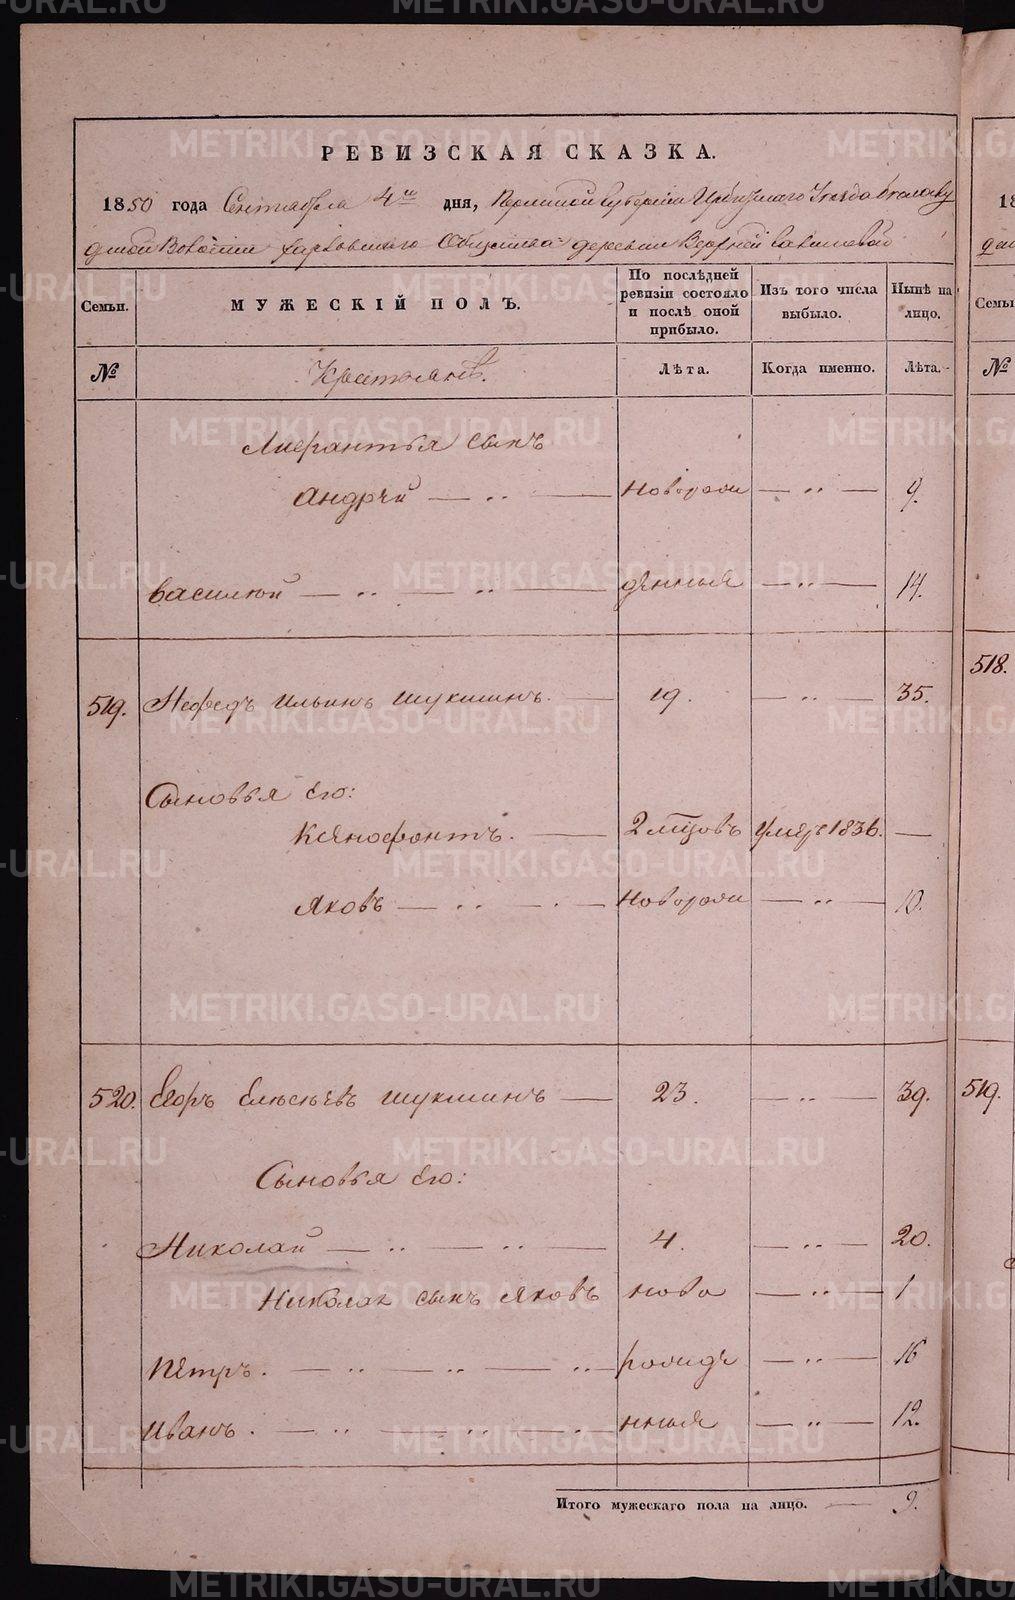 METRIKI.GASO-URAL.RU
РЕВИЗСКАЯ СКАЗКА.
1850 года Сентября 4го дня, Пермской Губернии Ирбитского Уезда
Волости Общества деревни Верхней
Семьи. МУЖЕСКІЙ ПОЛЪ. По послѣдней ревизіи состояло и послѣ оной прибыло. Изъ того числа выбыло. Нынѣ на лицо.
№ Крестьянъ. Лѣта. Когда именно. Лѣта.
сынъ
Андрѣй — новорож — 9.
Василій — денныя — 14.
519. Нефедъ Ильинъ Шукшинъ. — 19. — 35.
Сыновья Его:
Ксенофонтъ. — 2 мцовъ умеръ 1836. —
Яковъ — новорож — 10.
520. Егоръ Елисѣевъ Шукшинъ — 23. — 39.
Сыновья Его:
Николай — 4. — 20.
Николая сынъ Яковъ ново — 1
Пётръ. — рожде — 16
Иванъ. — нныя — 12.
Итого мужескаго пола на лицо. — 9.
518.
519.